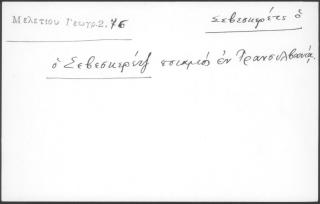 Μελετίου Γεωγρ. 2. 76
Σεβεσκερέτς ὁ
ὁ Σεβεσκερέτζ ποταμὸς ἐν Τρανσυλβανίᾳ